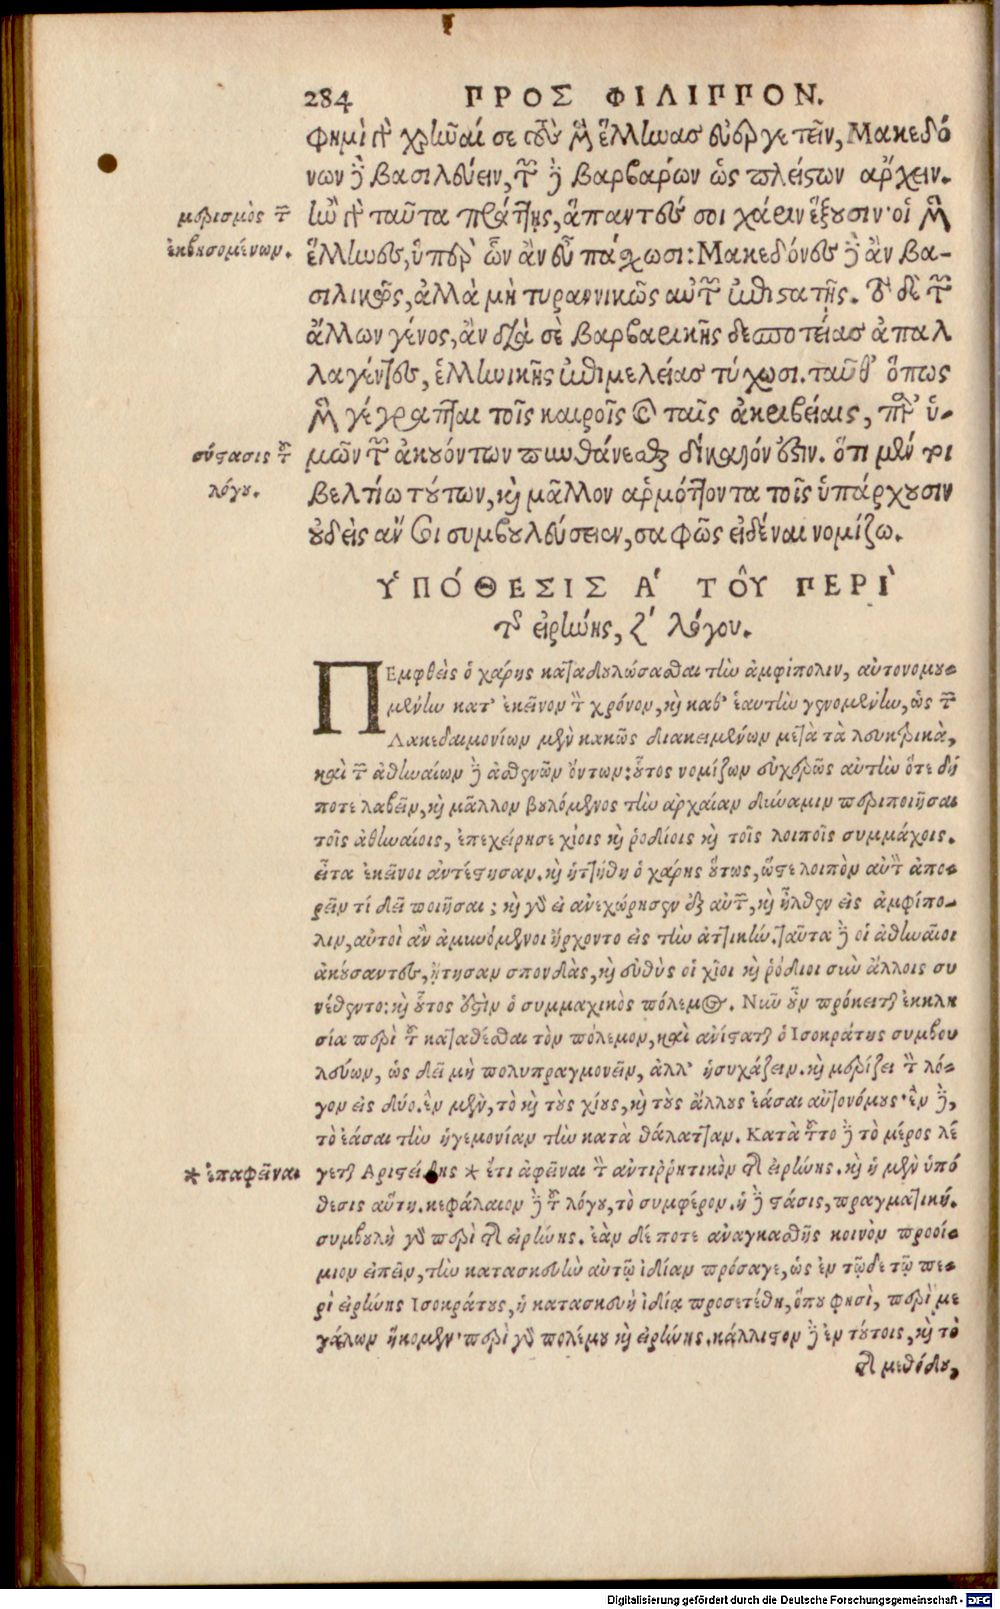 284 ΠΡΟΣ ΦΙΛΙΠΠΟΝ.
φημὶ γὰρ χρῆναί σε τοὺς μὲν ἕλληνας εὐεργετεῖν, Μακεδό
νων δὲ βασιλεύειν, τῶν δὲ βαρβάρων ὡς πλείστων ἄρχειν.
μερισμὸς τῶν
ἐκβησομένων.
ἢν γὰρ ταῦτα πράττης, ἅπαντές σοι χάριν ἕξουσιν· οἱ μὲν
ἕλληνες, ὑπὲρ ὧν ἂν εὖ πάσχωσι: Μακεδόνες δὲ ἂν βα-
σιλικῶς, ἀλλὰ μὴ τυραννικῶς αὐτῶν ἐπιστατῇς. τὸ δὲ τῶν
ἄλλων γένος, ἂν διὰ σὲ βαρβαρικῆς δεσποτείας ἀπαλ
λαγέντες, ἑλληνικῆς ἐπιμελείας τύχωσι. ταῦθ' ὅπως
μὲν γέγραπται τοῖς καιροῖς καὶ ταῖς ἀκριβείαις, παρ' ὑ-
σύστασις τοῦ
λόγου.
μῶν τῶν ἀκουόντων πυνθάνεσθαι δίκαιόν ἐστιν. ὅτι μέν τοι
βελτίω τούτων, καὶ μᾶλλον ἁρμόττοντα τοῖς ὑπάρχουσιν
οὐδεὶς ἄν σοι συμβουλεύσειεν, σαφῶς εἰδέναι νομίζω.
ὙΠΌΘΕΣΙΣ Α' ΤΟΥ͂ ΠΕΡῚ
τῆς εἰρήνης, ζ' λόγου.
ΠΕμφθεὶς ὁ χάρης καταδουλώσασθαι τὴν ἀμφίπολιν, αὐτονομου-
μένην κατ' ἐκεῖνον τὸν χρόνον, καὶ καθ' ἑαυτὴν γενομένην, ὡς τῶν
Λακεδαιμονίων μὲν κακῶς διακειμένων μετὰ τὰ λευκτρικὰ,
καὶ τῶν ἀθηναίων δὲ ἀσθενῶν ὄντων: οὗτος νομίζων εὐχερῶς αὐτὴν ὅτε δή
ποτε λαβεῖν, καὶ μᾶλλον βουλόμενος τὴν ἀρχαίαν δύναμιν περιποιῆσαι
τοῖς ἀθηναίοις, ἐπεχείρησε χίοις καὶ ῥοδίοις καὶ τοῖς λοιποῖς συμμάχοις.
εἶτα ἐκεῖνοι ἀντέστησαν. καὶ ἡττήθη ὁ χάρης οὕτως, ὥστε λοιπὸν αὐτὸν ἀπο-
ρεῖν τί δεῖ ποιῆσαι; καὶ γὰρ εἰ ἀνεχώρησεν ἐξ αὐτῶν, καὶ ἦλθεν εἰς ἀμφίπο-
λιν, αὐτοὶ ἂν ἀμυνόμενοι ἤρχοντο εἰς τὴν ἀττικήν. ταῦτα δὲ οἱ ἀθηναῖοι
ἀκούσαντες, ᾔτησαν σπονδὰς, καὶ εὐθὺς οἱ χῖοι καὶ ῥόδιοι σὺν ἄλλοις συ
νέθεντο: καὶ οὗτος ἐστὶν ὁ συμμαχικὸς πόλεμος. Νῦν οὖν πρόκειται ἐκκλη
σία περὶ τοῦ καταθέσθαι τὸν πόλεμον, καὶ ἀνίσταται ὁ Ἰσοκράτης συμβου
λεύων, ὡς δεῖ μὴ πολυπραγμονεῖν, ἀλλ' ἡσυχάζειν. καὶ μερίζει τὸν λό-
γον εἰς δύο. ἓν μὲν, τὸ καὶ τοὺς χίους, καὶ τοὺς ἄλλους ἐάσαι αὐτονόμους· ἓν δὲ,
τὸ ἐάσαι τὴν ἡγεμονίαν τὴν κατὰ θάλατταν. Κατὰ τοῦτο δὲ τὸ μέρος λέ
* ἐπαφεῖναι
γεται Ἀριστείδης * ἔτι ἀφεῖναι τὸν ἀντιῤῥητικὸν τῆς εἰρήνης. καὶ ἡ μὲν ὑπό
θεσις αὕτη. κεφάλαιον δὲ τοῦ λόγου, τὸ συμφέρον. ἡ δὲ στάσις, πραγματική.
συμβουλὴ γὰρ περὶ τῆς εἰρήνης. ἐὰν δέ ποτε ἀναγκασθῇς κοινὸν προοί-
μιον εἰπεῖν, τὴν κατασκευὴν αὐτῷ ἰδίαν πρόσαγε, ὡς ἐν τῷδε τῷ πε-
ρὶ εἰρήνης Ἰσοκράτους, ἡ κατασκευὴ ἰδία προσετέθη, ὅπου φησὶ, περὶ με
γάλων ἥκομεν· περὶ γὰρ πολέμου καὶ εἰρήνης. κάλλιστον δὲ ἐν τούτοις, καὶ τὸ
τῆς μεθόδου,
Digitalisierung gefördert durch die Deutsche Forschungsgemeinschaft - DFG